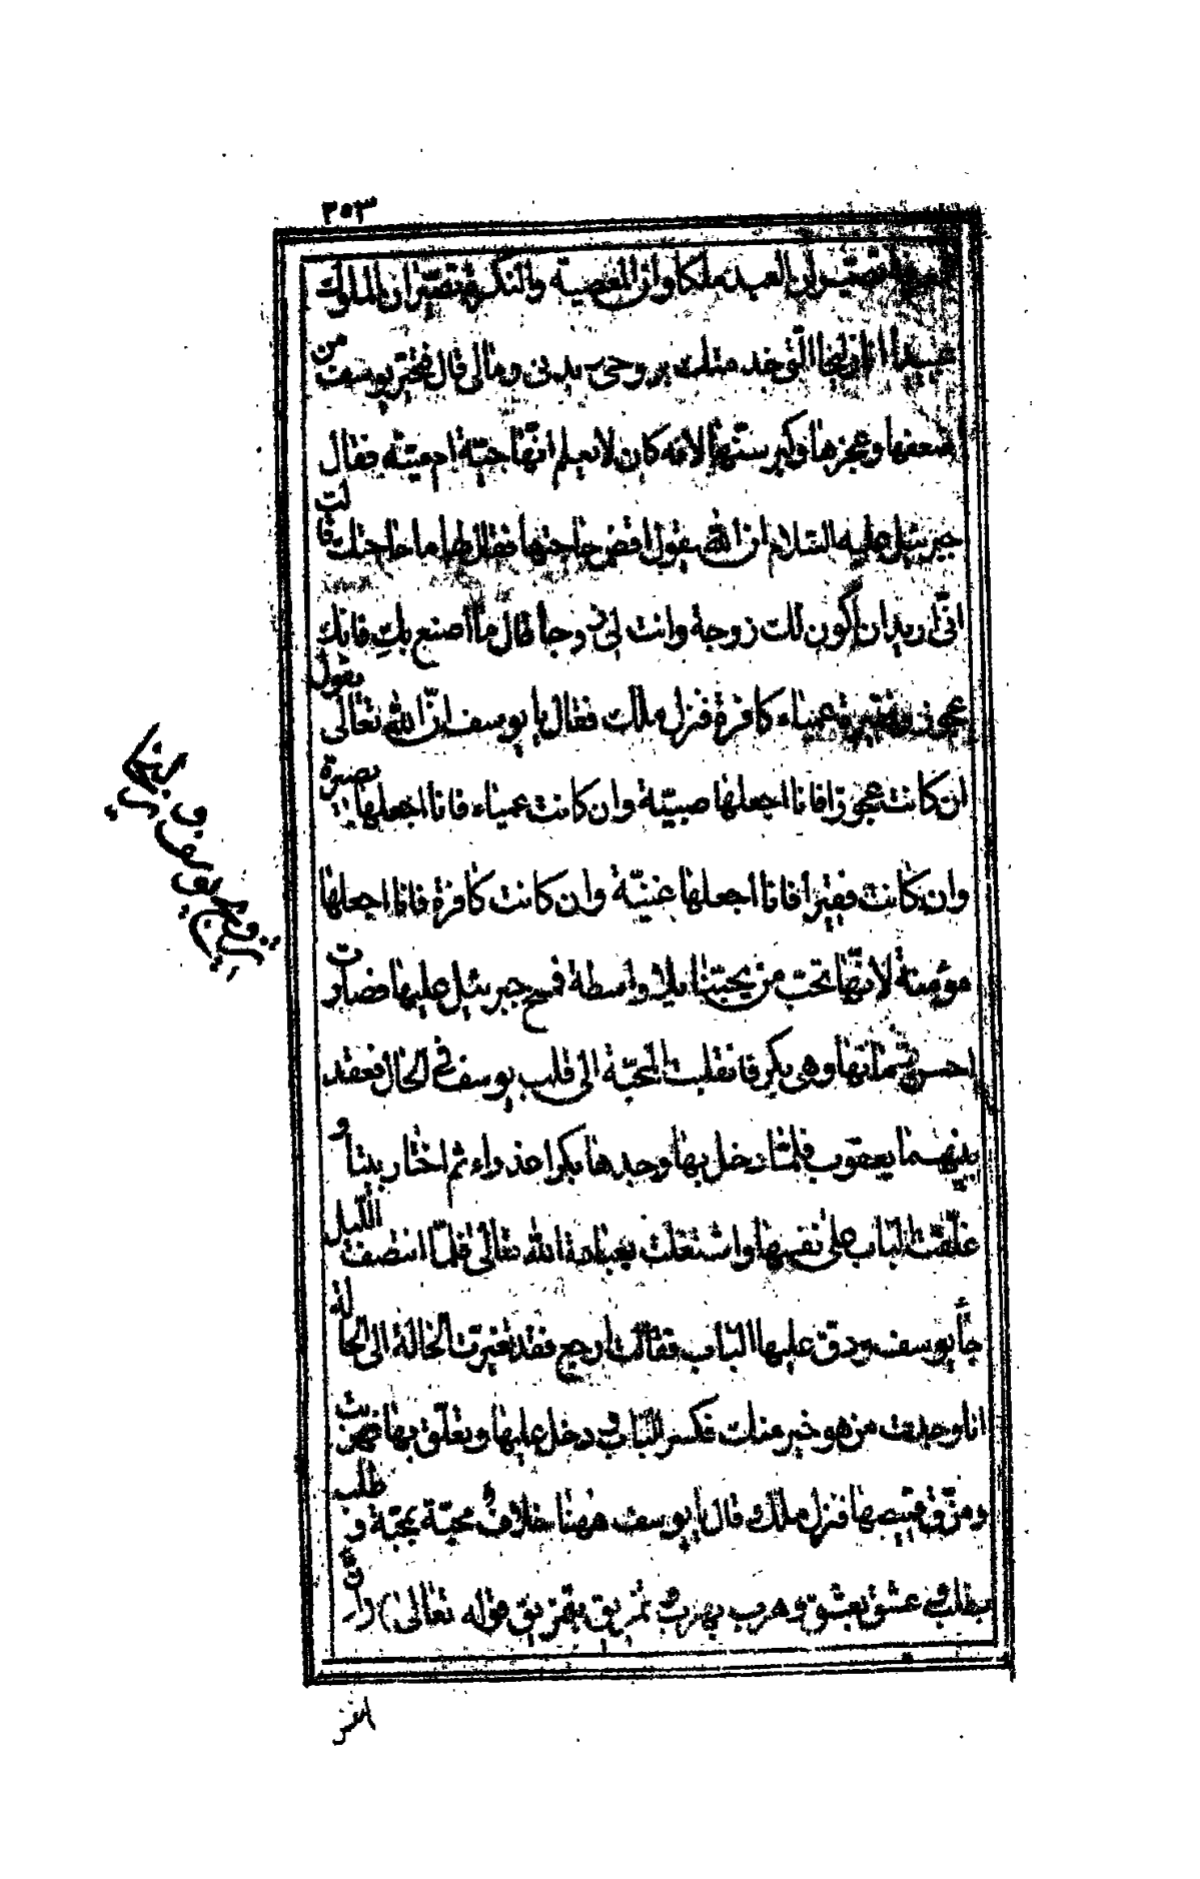 ٣٥٣
تصير العبد ملكا وان المعصية والنكرة تصيران الملوك
عبيدا انا زليخا التى خدمتك بروحى وبدنى ومالى قال فتحير يوسف من
ضعفها وعجزها وكبر سنّها لانه كان لا يعلم انّها حيّة ام ميّتة فقال
جبرئيل عليه السّلام ان الله يقول اقض حاجتها فقال لها ما حاجتك قالت
انّى اريد ان اكون لك زوجة وانت لى زوجا قال ما اصنع بك فانك
عجوز وفقيرة عمياء كافرة فنزل ملك فقال يا يوسف انّ الله تعالى يقول
ان كانت عجوزا فانا اجعلها صبيّة وان كانت عمياء فانا اجعلها بصيرة
وان كانت فقيرا فانا اجعلها غنيّة وان كانت كافرة فانا اجعلها
مؤمنة لأنّها تحبّ من يحبّنا بلا واسطة فمسح جبرئيل عليها فصارت
احسن ممّا انها وهى بكر فانقلبت المحبّة الى قلب يوسف فى الحال فعقد
بينهما يعقوب فلمّا دخل بها وجدها بكرا عذراء ثم اختار بيتا و
غلّقت الباب على نفسها واشتغلت بعبادة الله تعالى فلمّا انتصف اللّيل
جاء يوسف ودقّ عليها الباب فقالت ارجع فقد تغيرت الحالة الى الحالة
انا وجدت من هو خير منك فكسر الباب ودخل عليها وتعلّق بها فهربت
ومزّق قميصها فنزل ملك قال يا يوسف ههنا خلاف محبّة بمحبّة و طلب
بطلب و عشق بعشق وهرب بهرب و تمزيق بتمزيق قوله تعالى) وانّ
النفس
تزويج يوسف و زليخا